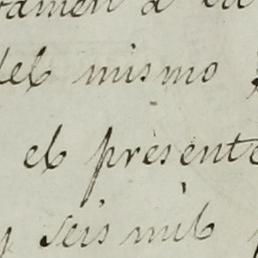 del mismo
el presente
y seis mil